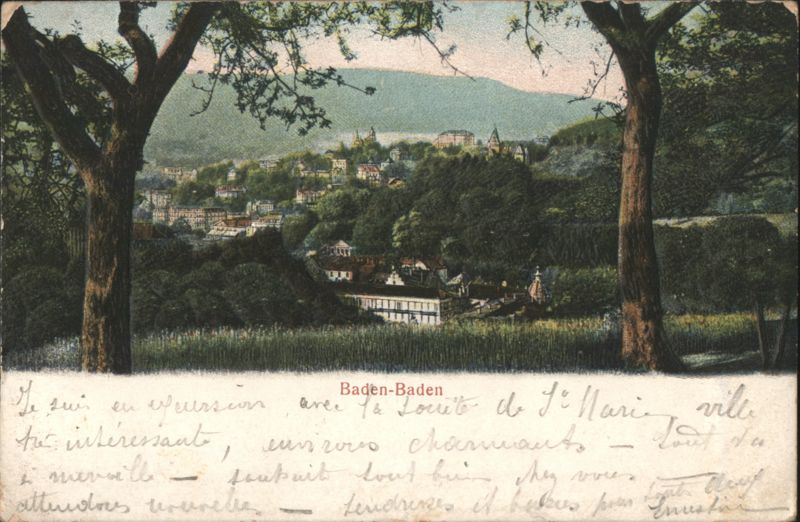 Baden-Baden
Je suis en excursion, avec la Société de Ste Marie, ville
très intéressante, environs charmants — tout va
à merveille — souhait tout bien chez vous —
attendons nouvelles — tendresses et baisers pour toutes deux